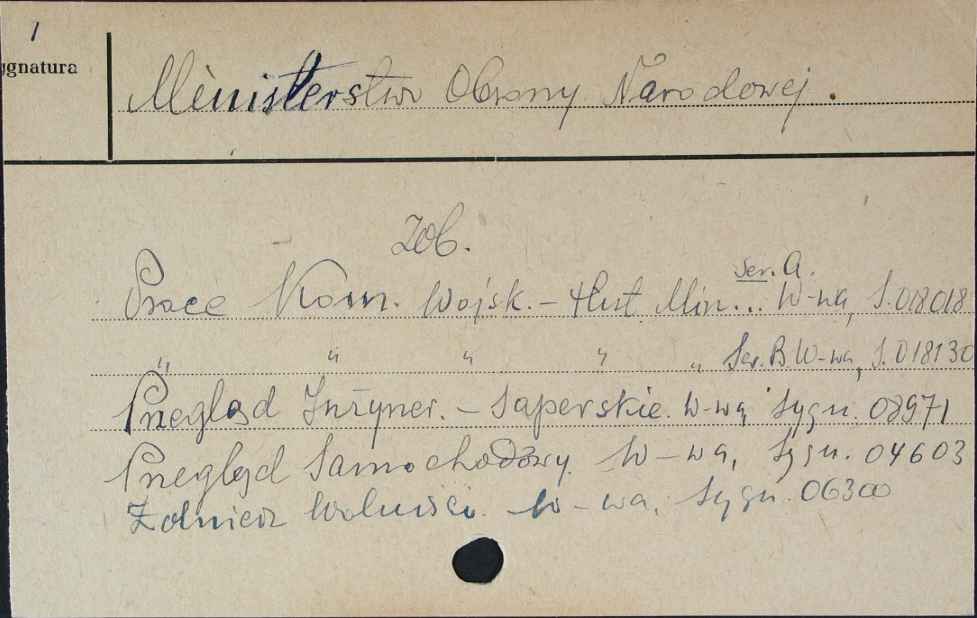 1
ygnatura
Ministerstwo Obrony Narodowej.
Zob.
Ser. A.
Prace Kom. Wojsk. - Hist. Min... W-wa, S. 018018
" " " " " Ser. B. W-wa, S. 018130
Przegląd Inżynier. - Saperskie. W-wa Sygn. 08971
Przegląd Samochodowy W-wa, Sygn. 04603
Żołnierz Wolności. W-wa, Sygn. 06300